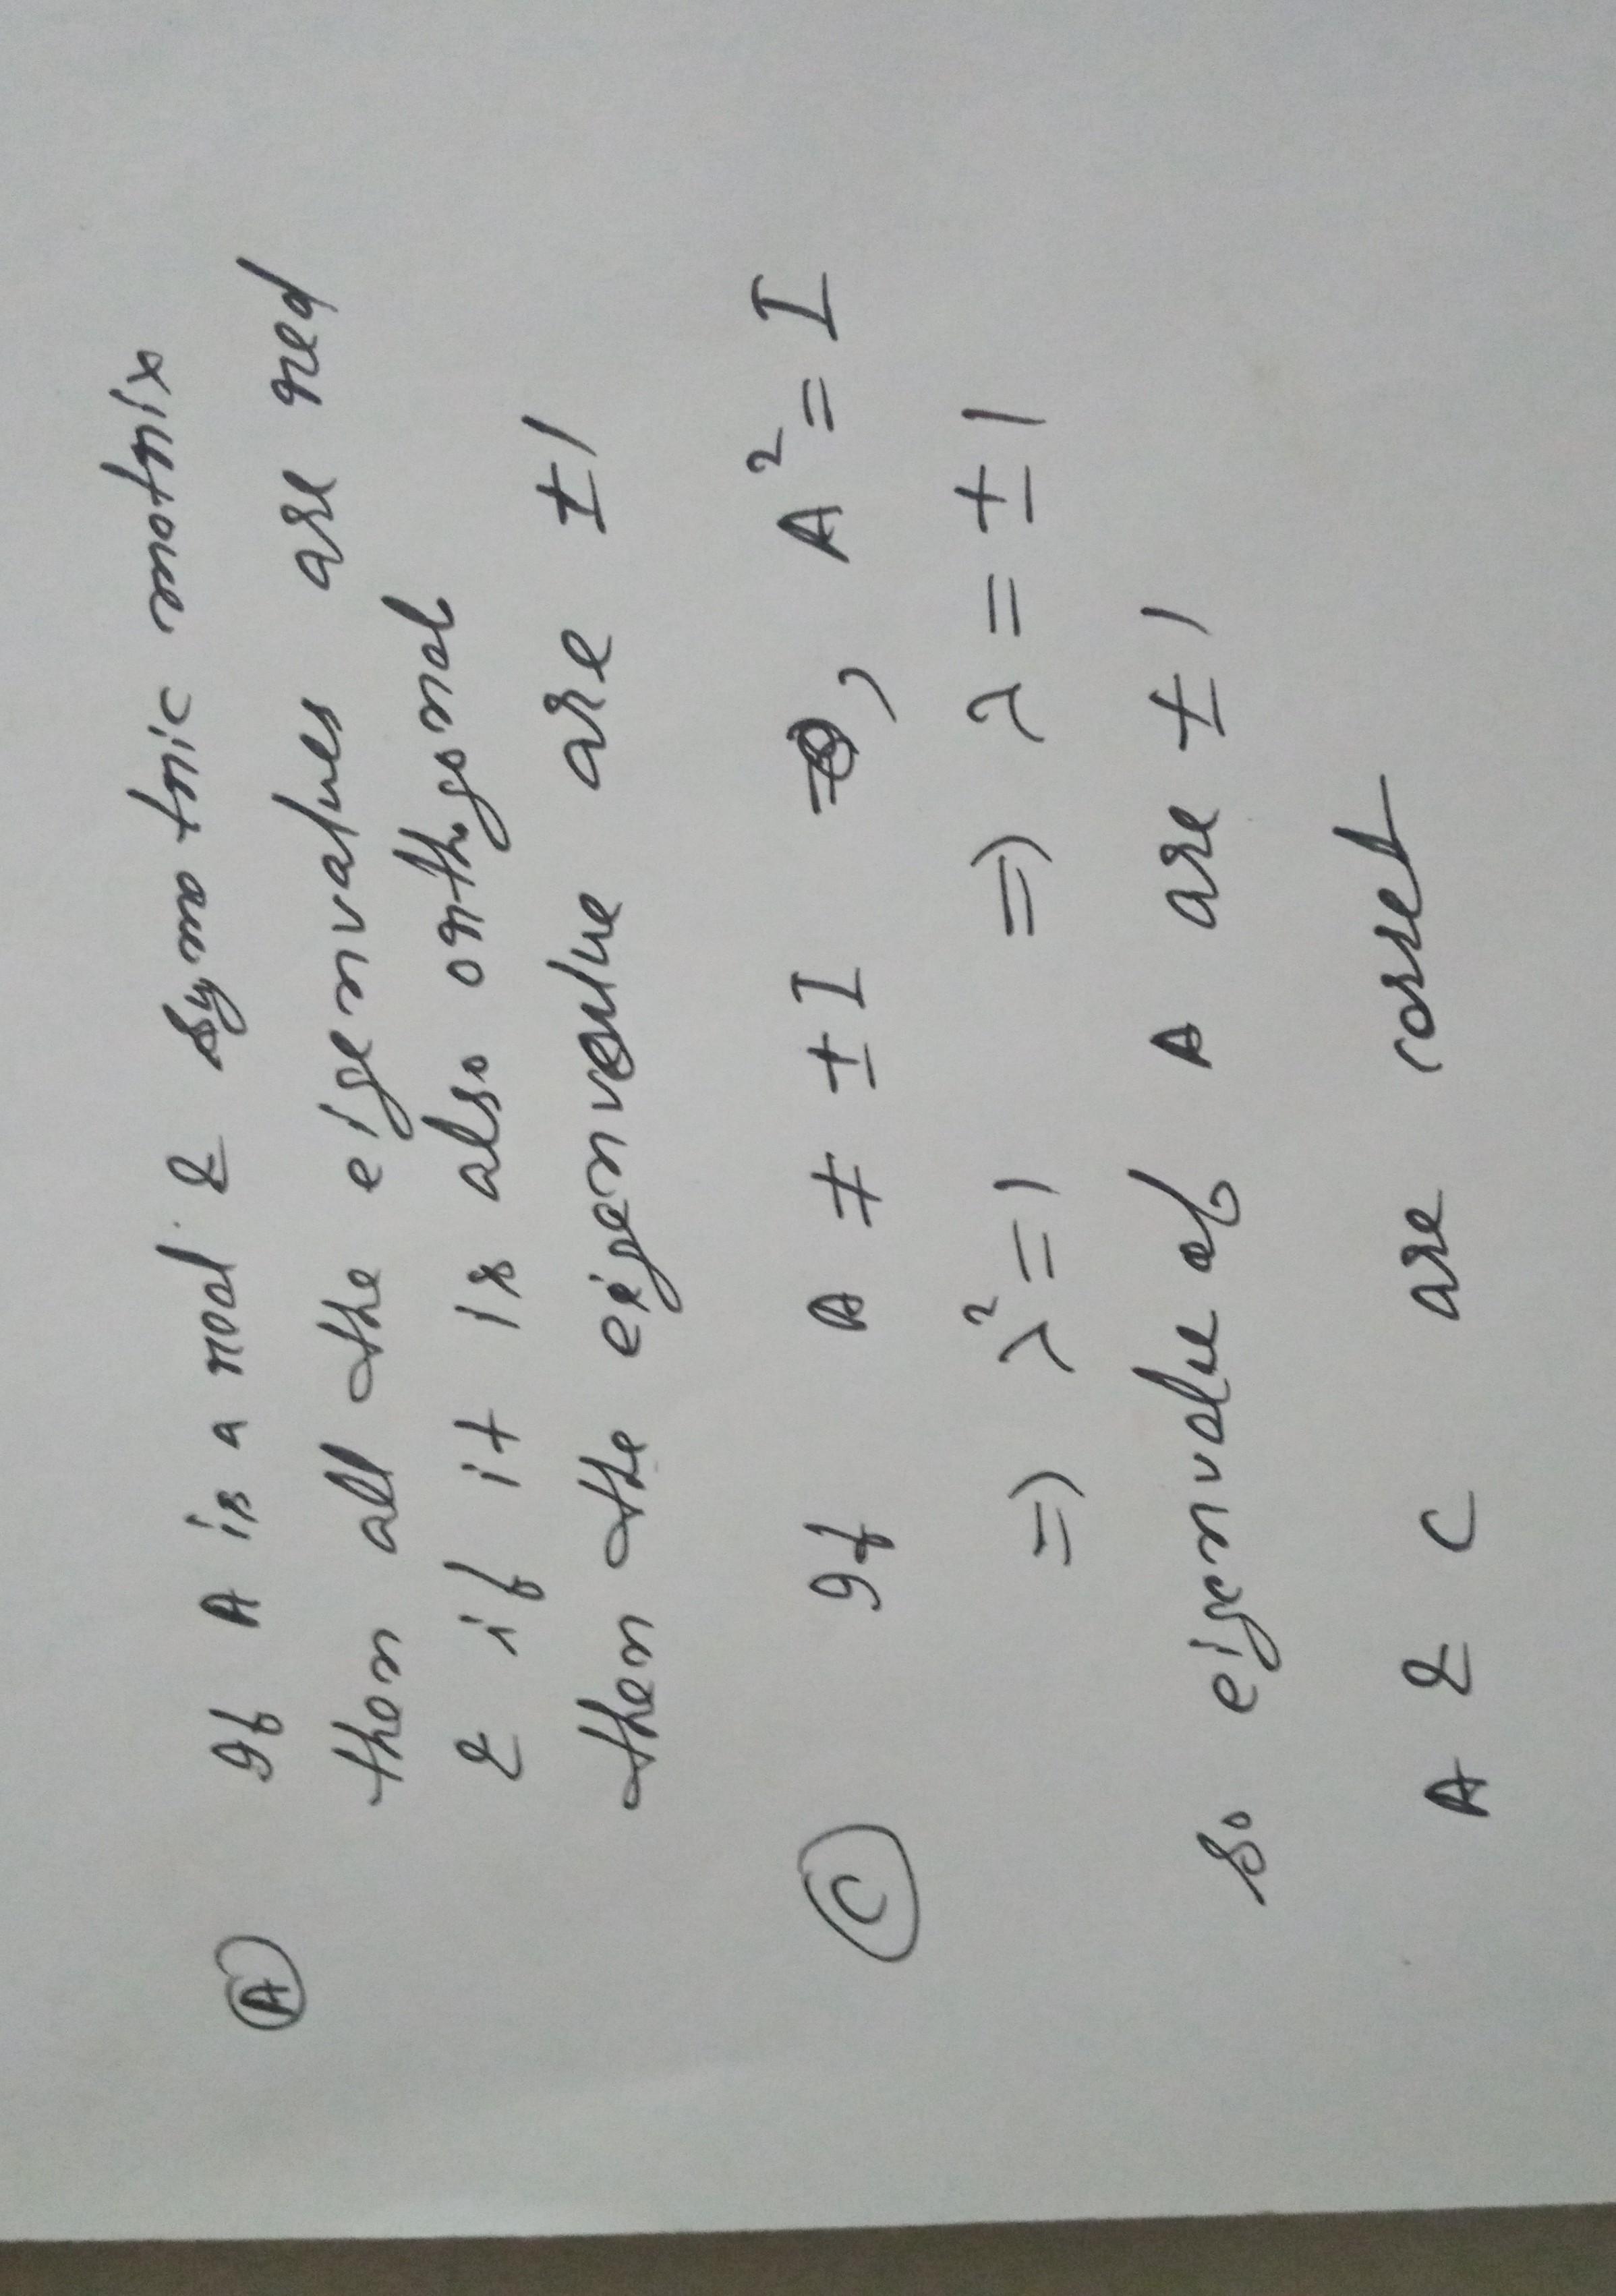 (A) If A is a real & symmatric matrix
then all the eigenvalues are real
& if it is also orthogonal
then the eigenvalue are ±1
(C) If A ≠ ±I , A² = I
=) λ² = 1 =) λ = ± 1
so eigenvalue of A are ± 1
A & C are corret